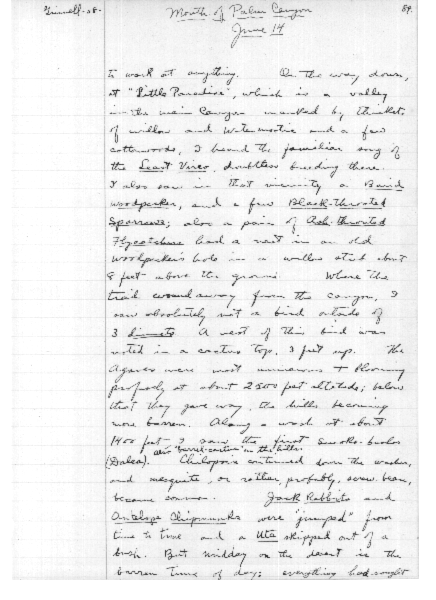 Grinnell-'08- Mouth of Palm Canyon 84.
June 14
to work at anything. On the way down,
at "Little Paradise", which is a valley
in the main Canyon marked by thickets
of willow and Watermotie and a few
cottonwoods, I heard the familiar song of
the Least Vireo, doubtless breeding there.
I also saw in that vicinity a Baird
woodpecker, and a few Black-throated
Sparrows; also a pair of Ash-throated
Flycatchers had a nest in an old
woodpecker's hole in a willow stub about
8 feet above the ground. Where the
trail wound away from the canyon, I
saw absolutely not a bird outside of
3 A nest of this bird was
noted in a cactus top, 3 feet up. The
Agaves were most numerous + blooming
profusely at about 2500 feet altitude; below
that they gave way, the hills becoming
more barren. Along a wash at about
1400 feet I saw the first smoke-bushes
also "barrel-cactus" on the hills.
(Dalea). Chilopsis continued down the washes,
and mesquite, or rather, probably, screw-bean,
became common. Jack Rabbits and
Antelope Chipmunks were "jumped" from
time to time and a Uta skipped out of a
bush. But midday on the desert is the
barren time of day; everything had sought